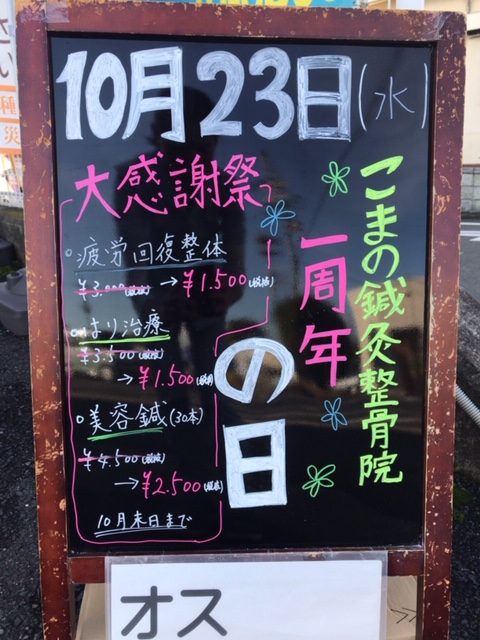 10月23日(水)
こまの鍼灸整骨院
一周年
の日
大感謝祭
。疲労回復整体
¥3.000(税抜)
→¥1.500(税抜)
。はり治療
¥3.500(税抜)
→¥1.500(税抜)
。美容鍼(30本)
¥4.500(税抜)
→¥2.500(税抜)
10月末日まで
オス